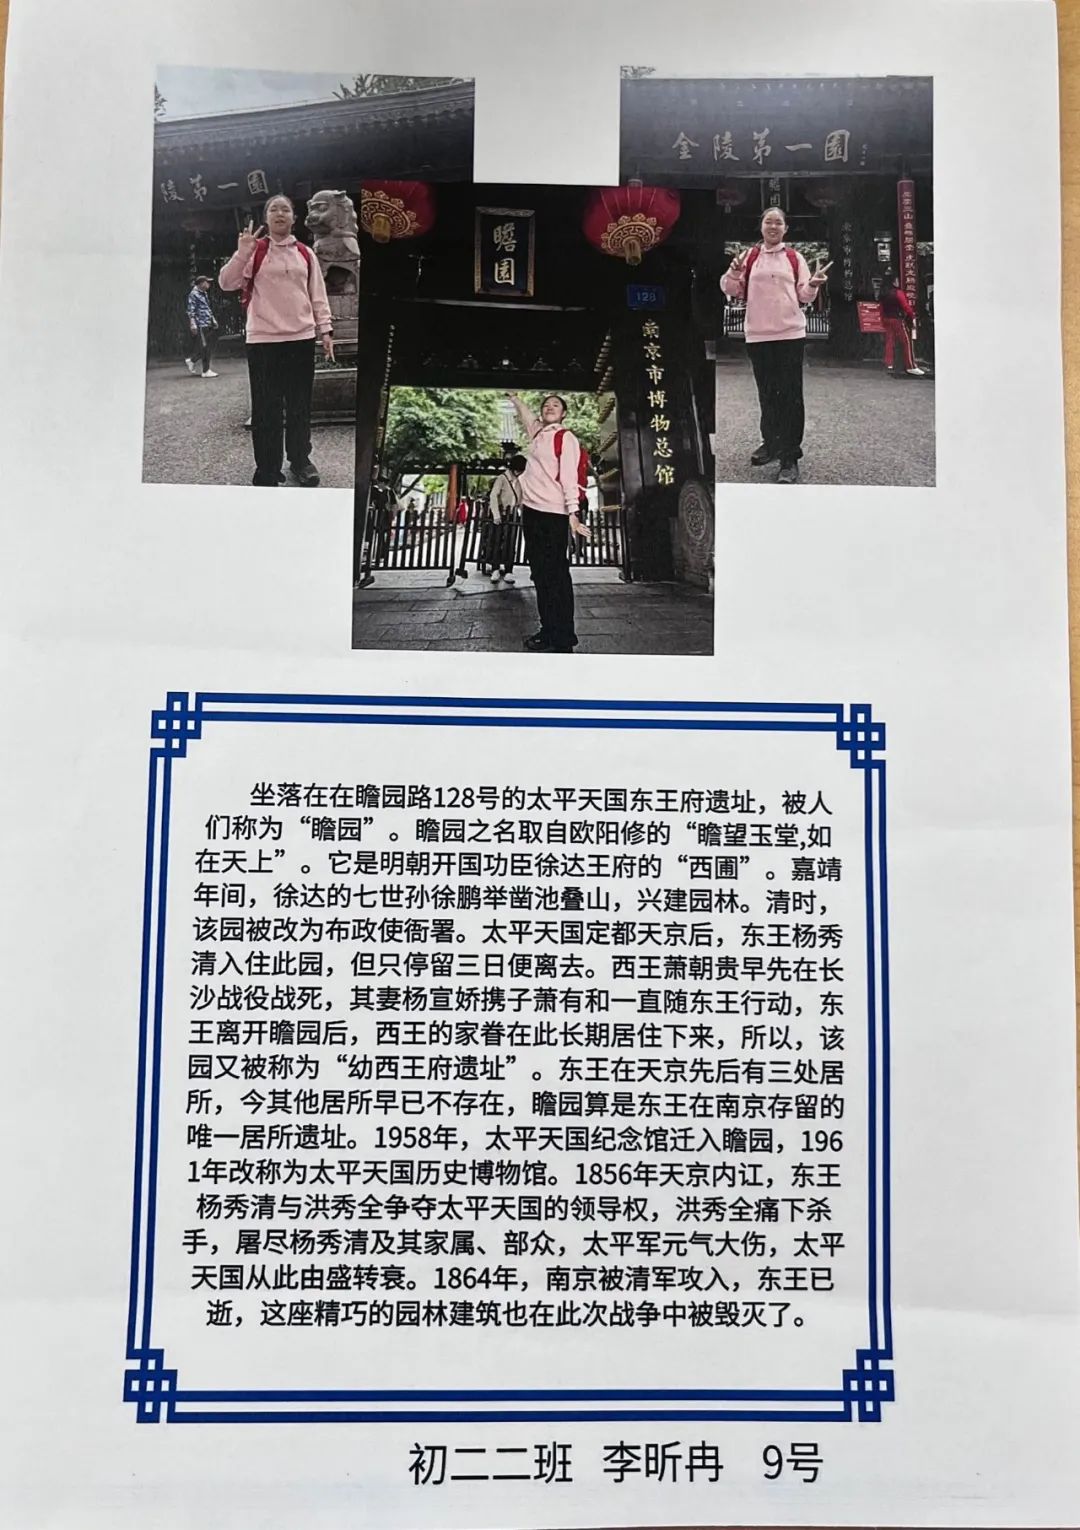 陵第一園
金陵第一園
瞻園
瞻園
128
南京市博物总馆
坐落在在瞻园路128号的太平天国东王府遗址，被人
们称为“瞻园”。瞻园之名取自欧阳修的“瞻望玉堂,如
在天上”。它是明朝开国功臣徐达王府的“西圃”。嘉靖
年间，徐达的七世孙徐鹏举凿池叠山，兴建园林。清时，
该园被改为布政使衙署。太平天国定都天京后，东王杨秀
清入住此园，但只停留三日便离去。西王萧朝贵早先在长
沙战役战死，其妻杨宣娇携子萧有和一直随东王行动，东
王离开瞻园后，西王的家眷在此长期居住下来，所以，该
园又被称为“幼西王府遗址”。东王在天京先后有三处居
所，今其他居所早已不存在，瞻园算是东王在南京存留的
唯一居所遗址。1958年，太平天国纪念馆迁入瞻园，196
1年改称为太平天国历史博物馆。1856年天京内讧，东王
杨秀清与洪秀全争夺太平天国的领导权，洪秀全痛下杀
手，屠尽杨秀清及其家属、部众，太平军元气大伤，太平
天国从此由盛转衰。1864年，南京被清军攻入，东王已
逝，这座精巧的园林建筑也在此次战争中被毁灭了。
初二二班 李昕冉 9号